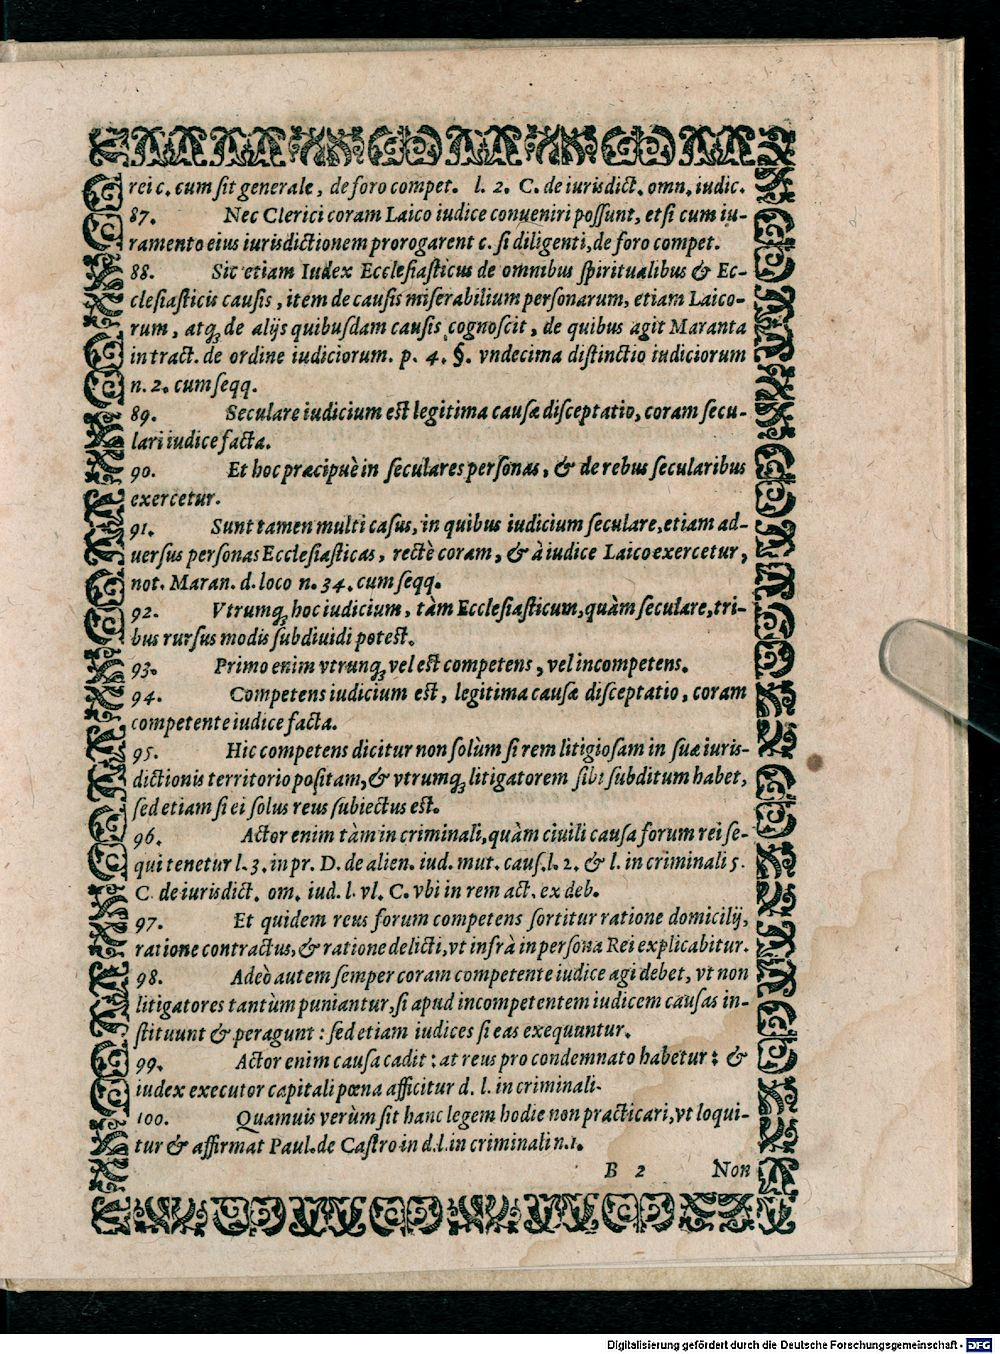 rei c. cum sit generale, de foro compet. l. 2. C. de iurisdict. omn. iudic.
87. Nec Clerici coram Laico iudice conueniri possunt, etsi cum iu-
ramento eius iurisdictionem prorogarent c. si diligenti, de foro compet.
88. Sic etiam Iudex Ecclesiasticus de omnibus spiritualibus & Ec-
clesiasticis causis, item de causis miserabilium personarum, etiam Laico-
rum, atqꝫ de alijs quibusdam causis cognoscit, de quibus agit Maranta
in tract. de ordine iudiciorum. p. 4. §. vndecima distinctio iudiciorum
n. 2. cum seqq.
89. Seculare iudicium est legitima causæ disceptatio, coram secu-
lari iudice facta.
90. Et hoc præcipuè in seculares personas, & de rebus secularibus
exercetur.
91. Sunt tamen multi casus, in quibus iudicium seculare, etiam ad-
uersus personas Ecclesiasticas, rectè coram, & à iudice Laico exercetur,
not. Maran. d. loco n. 34. cum seqq.
92. Vtrumqꝫ hoc iudicium, tàm Ecclesiasticum, quàm seculare, tri-
bus rursus modis subdiuidi potest.
93. Primo enim vtrunqꝫ vel est competens, vel incompetens.
94. Competens iudicium est, legitima causæ disceptatio, coram
competente iudice facta.
95. Hic competens dicitur non solùm si rem litigiosam in suæ iuris-
dictionis territorio positam, & vtrumqꝫ litigatorem sibi subditum habet,
sed etiam si ei solus reus subiectus est.
96. Actor enim tàm in criminali, quàm ciuili causa forum rei se-
qui tenetur l. 3. in pr. D. de alien. iud. mut. caus. l. 2. & l. in criminali 5.
C. de iurisdict. om. iud. l. vl. C. vbi in rem act. ex deb.
97. Et quidem reus forum competens sortitur ratione domicilij,
ratione contractus, & ratione delicti, vt infrà in persona Rei explicabitur.
98. Adeò autem semper coram competente iudice agi debet, vt non
litigatores tantùm puniantur, si apud incompetentem iudicem causas in-
stituunt & peragunt : sed etiam iudices si eas exequuntur.
99. Actor enim causa cadit : at reus pro condemnato habetur : &
iudex executor capitali pœna afficitur d. l. in criminali.
100. Quamuis verùm sit hanc legem hodie non practicari, vt loqui-
tur & affirmat Paul. de Castro in d. l. in criminali n. 1.
B 2 Non
Digitalisierung gefördert durch die Deutsche Forschungsgemeinschaft - DFG